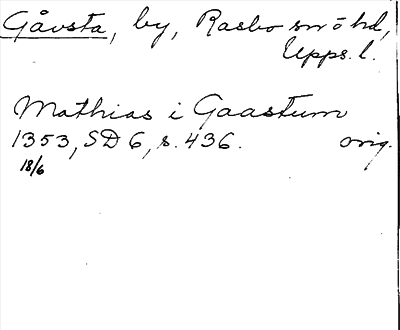 Gåvsta, by, Rasbo sn o hd,
Upps. l.
Mathias i Gaastum
1353, SD 6, s. 436. orig.
18/6